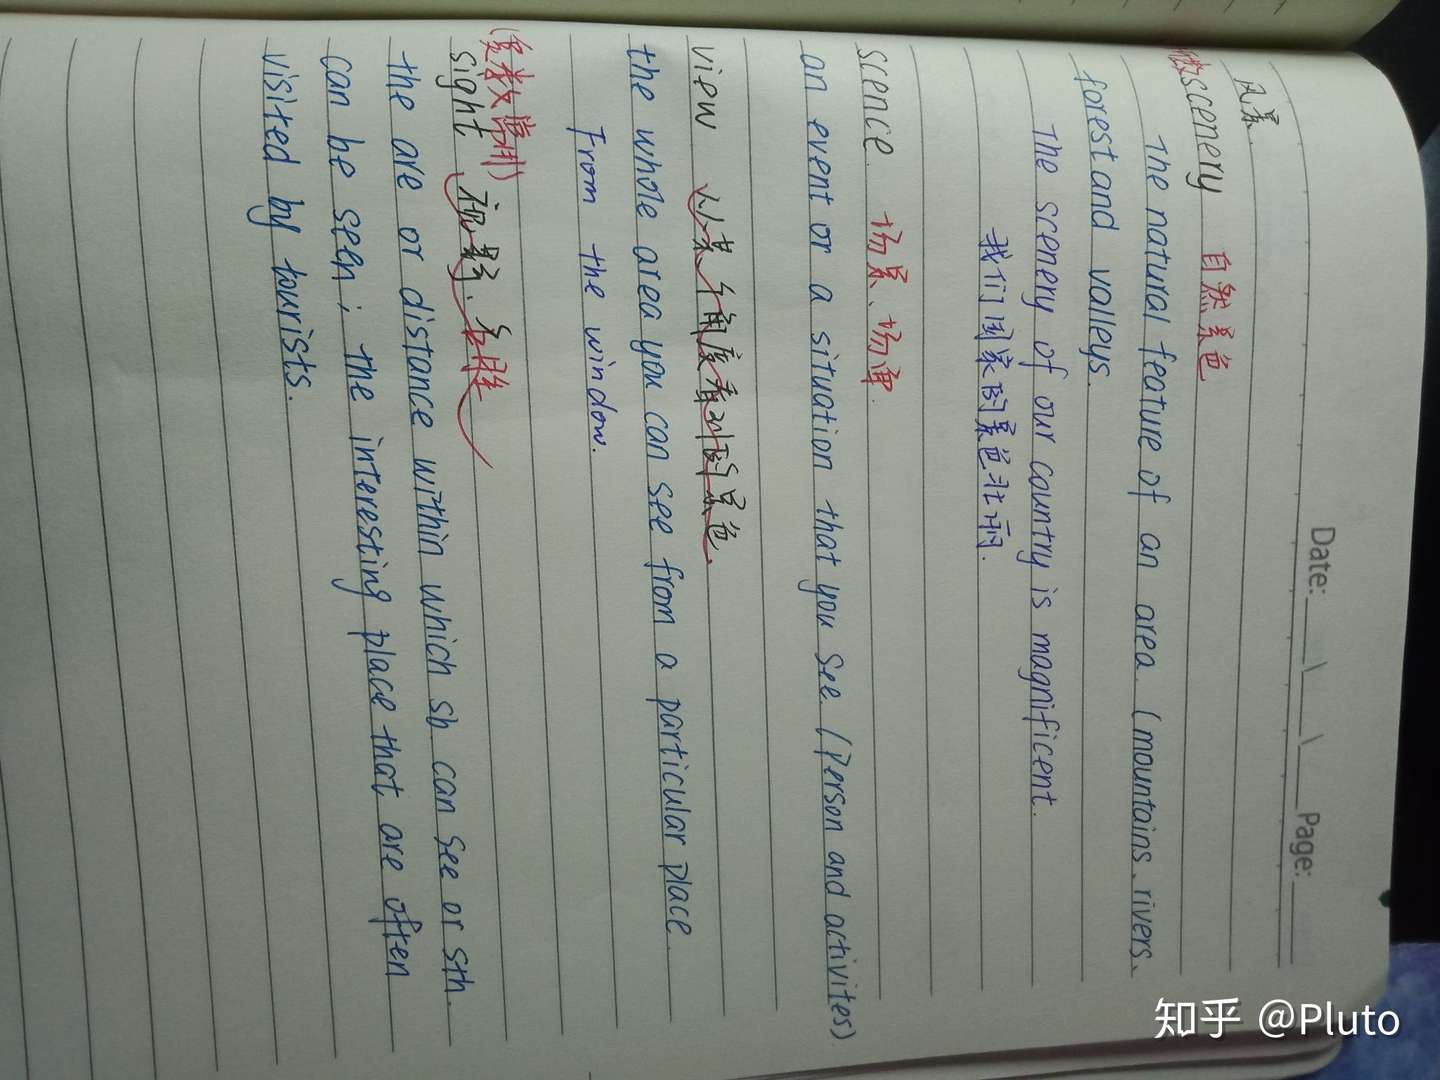 Date: \ \ Page:
风景.
scenery 自然景色
The natural feature of an area (mountains、rivers、
forest and valleys.
The scenery of our country is magnificent.
我们国家的景色壮丽.
scence 场景、场面.
an event or a situation that you see. (Person and activites)
view 从某个角度看到的景色.
the whole area you can see from a particular place
From the window.
(复数常用)
sight 视野、名胜
the are or distance within which sb can see or sth
can be seen; the interesting place that are often
visited by tourists.
知乎 @Pluto